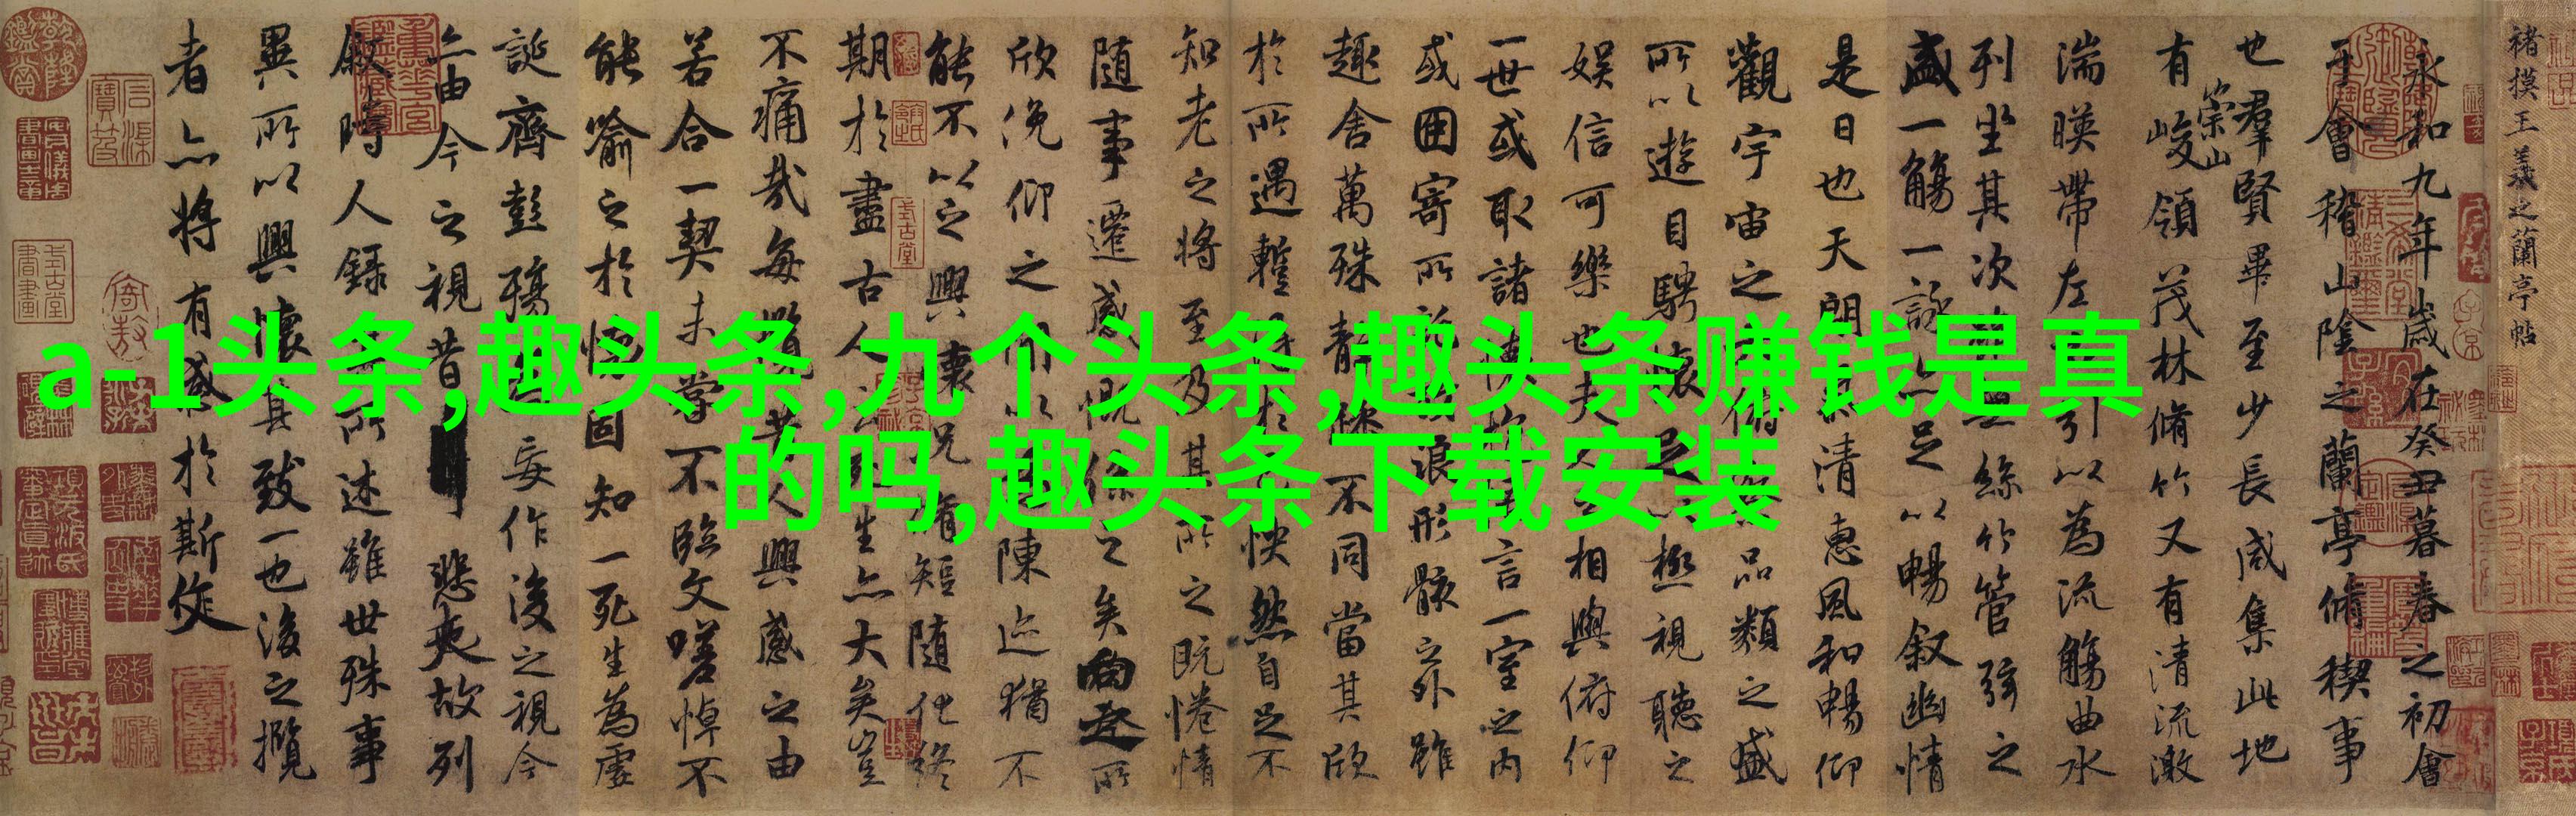 褚摸王羲之蘭亭帖
永和九年歲在癸丑暮春之初會
于會稽山陰之蘭亭脩稧事
也羣賢畢至少長咸集此地
有崇山峻領茂林脩竹又有清流激
湍暎帶左引以為流觴曲水
列坐其次絲竹管弦之
盛一觴一詠亦足以暢叙幽情
是日也天朗清惠風和暢仰
觀宇宙之俯品類之盛
所以遊目騁懷足極視聽之
娛信可樂也夫相與俯仰
一世或取諸言一室之內
或因寄所浪形骸之外雖
趣舍萬殊靜不同當其欣
於所遇蹔得於怏然自足不
知老之將至及其所之既惓情
隨事遷感慨係之矣向之所
欣俛仰之以陳迹猶不
能不以之興懷況脩短隨化終
期於盡古人生亦大矣豈
不痛哉每攬昔人興感之由
若合一契未嘗不臨文嗟悼不
能喻之於固知一死生為虛
誕齊彭殤妄作後之視今
亦由今之視昔悲夫故列
叙時人錄所述雖世殊事
異所以興懷其致一也後之攬
者亦將有感於斯文
a-1头条,趣头条,九个头条,趣头条赚钱是真
的吗,趣头条下载安装